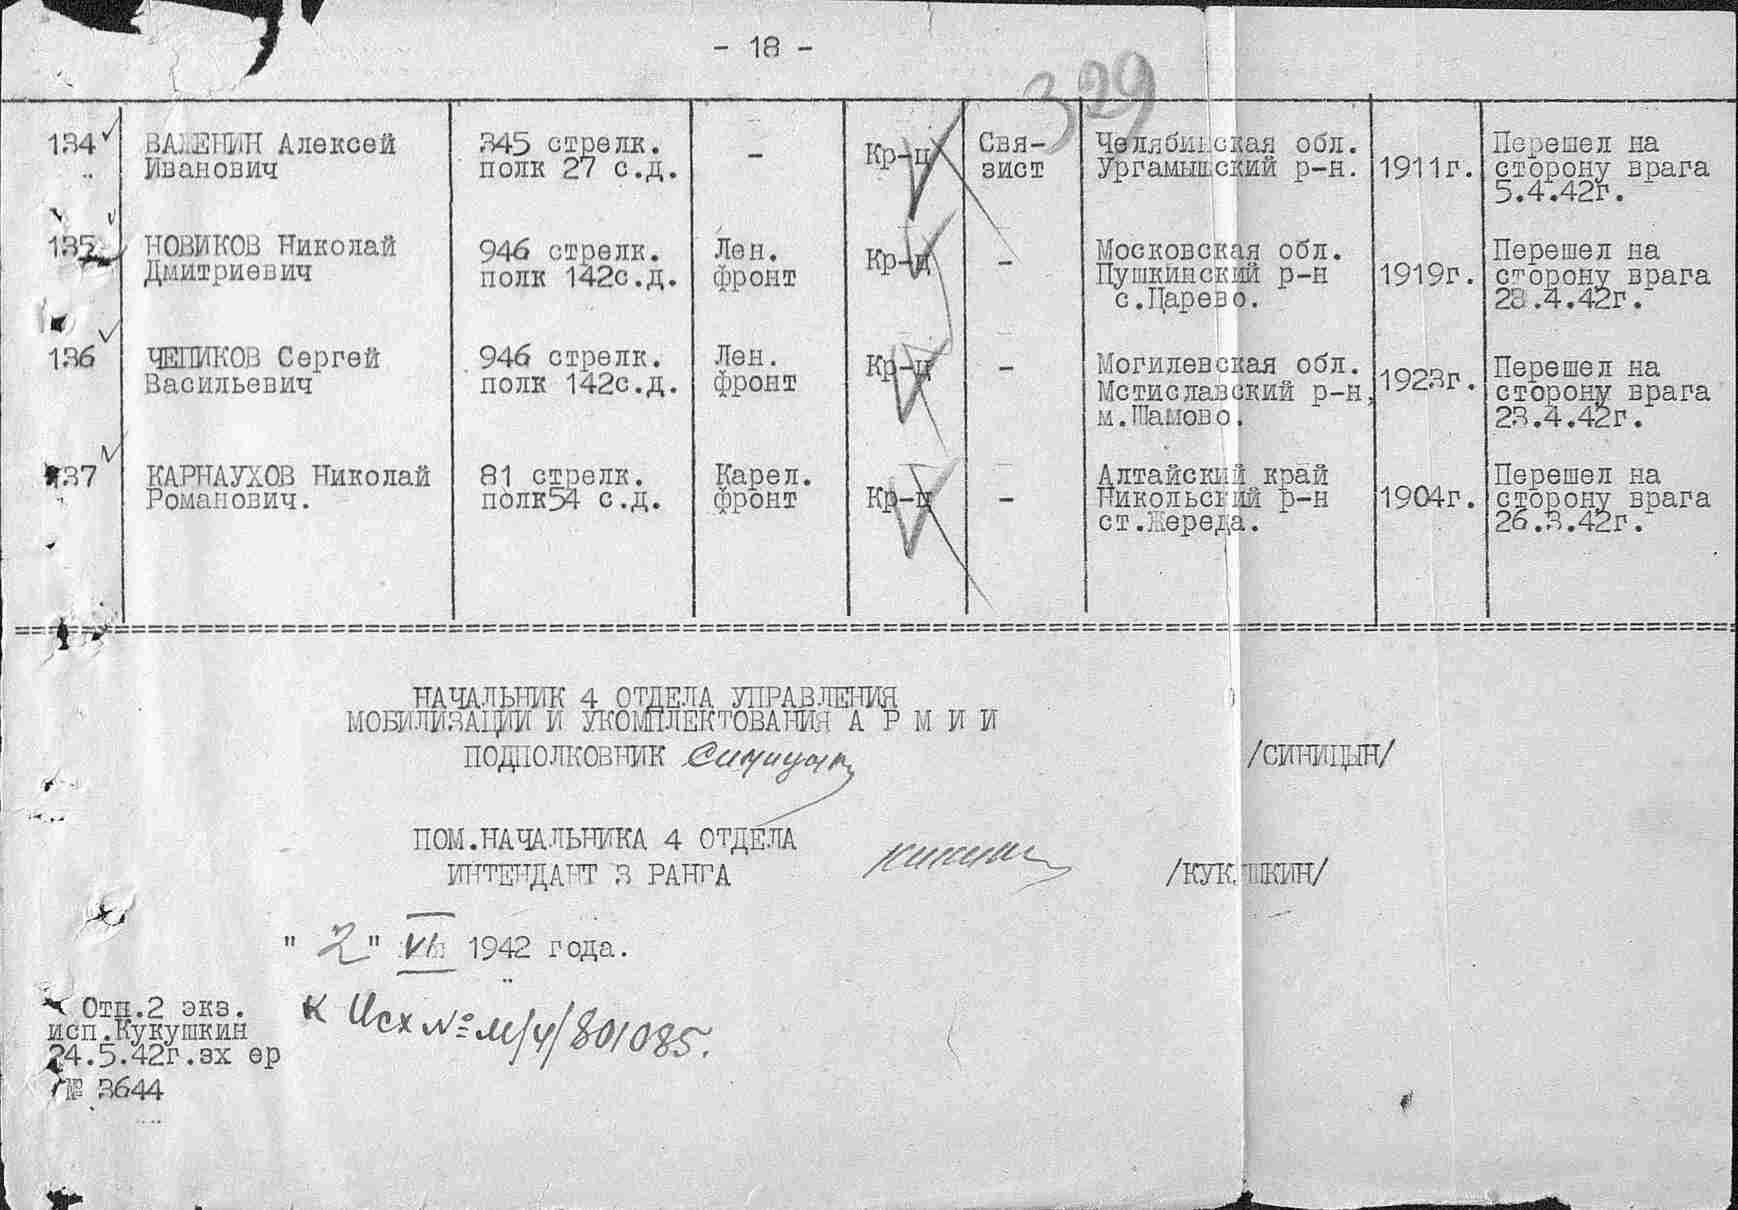 - 18 -
329
134 ВАЛЕНИН Алексей Иванович
345 стрелк. полк 27 с.д.
-
Кр-ц
Свя-зист
Челябинская обл. Ургамышский р-н.
1911г.
Перешел на сторону врага 5.4.42г.
135 НОВИКОВ Николай Дмитриевич
946 стрелк. полк 142с.д.
Лен. фронт
Кр-ц
-
Московская обл. Пушкинский р-н с.Царево.
1919г.
Перешел на сторону врага 23.4.42г.
136 ЧЕПИКОВ Сергей Васильевич
946 стрелк. полк 142с.д.
Лен. фронт
Кр-ц
-
Могилевская обл. Мстиславский р-н, м.Шамово.
1923г.
Перешел на сторону врага 23.4.42г.
137 КАРНАУХОВ Николай Романович.
81 стрелк. полк54 с.д.
Карел. фронт
Кр-ц
-
Алтайский край Никольский р-н ст.Жереда.
1904г.
Перешел на сторону врага 26.3.42г.
НАЧАЛЬНИК 4 ОТДЕЛА УПРАВЛЕНИЯ
МОБИЛИЗАЦИИ И УКОМПЛЕКТОВАНИЯ А Р М И И
ПОДПОЛКОВНИК Синицын /СИНИЦЫН/
ПОМ.НАЧАЛЬНИКА 4 ОТДЕЛА
ИНТЕНДАНТ 3 РАНГА /КУКУШКИН/
" 2 " VI 1942 года.
К Исх № м/4/801085.
Отп.2 экз.
исп.Кукушкин
24.5.42г.зх ер
№ 3644